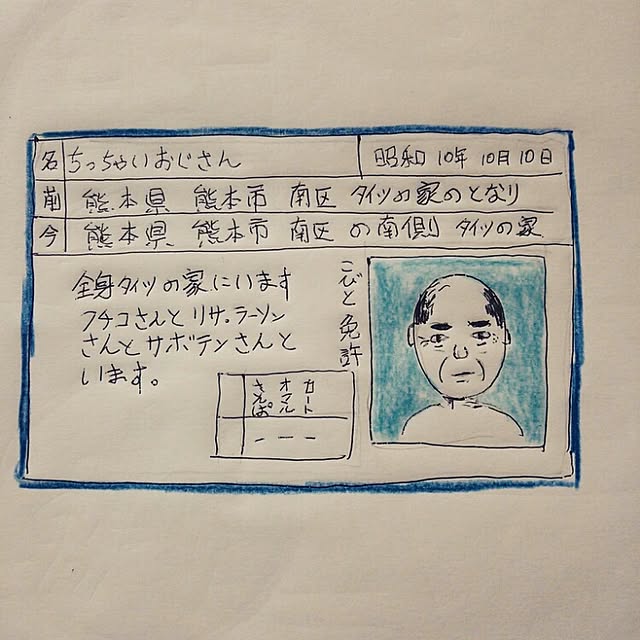 名 ちっちゃいおじさん 昭和 10年 10月 10日
前 熊本県 熊本市 南区 タイツの家のとなり
今 熊本県 熊本市 南区 の南側 タイツの家
全身タイツの家にいます
フチコさんと リサ・ラーソン
さんと サボテンさんと
います。
こびと免許
カート
オマル
さんぽ
ー ー ー